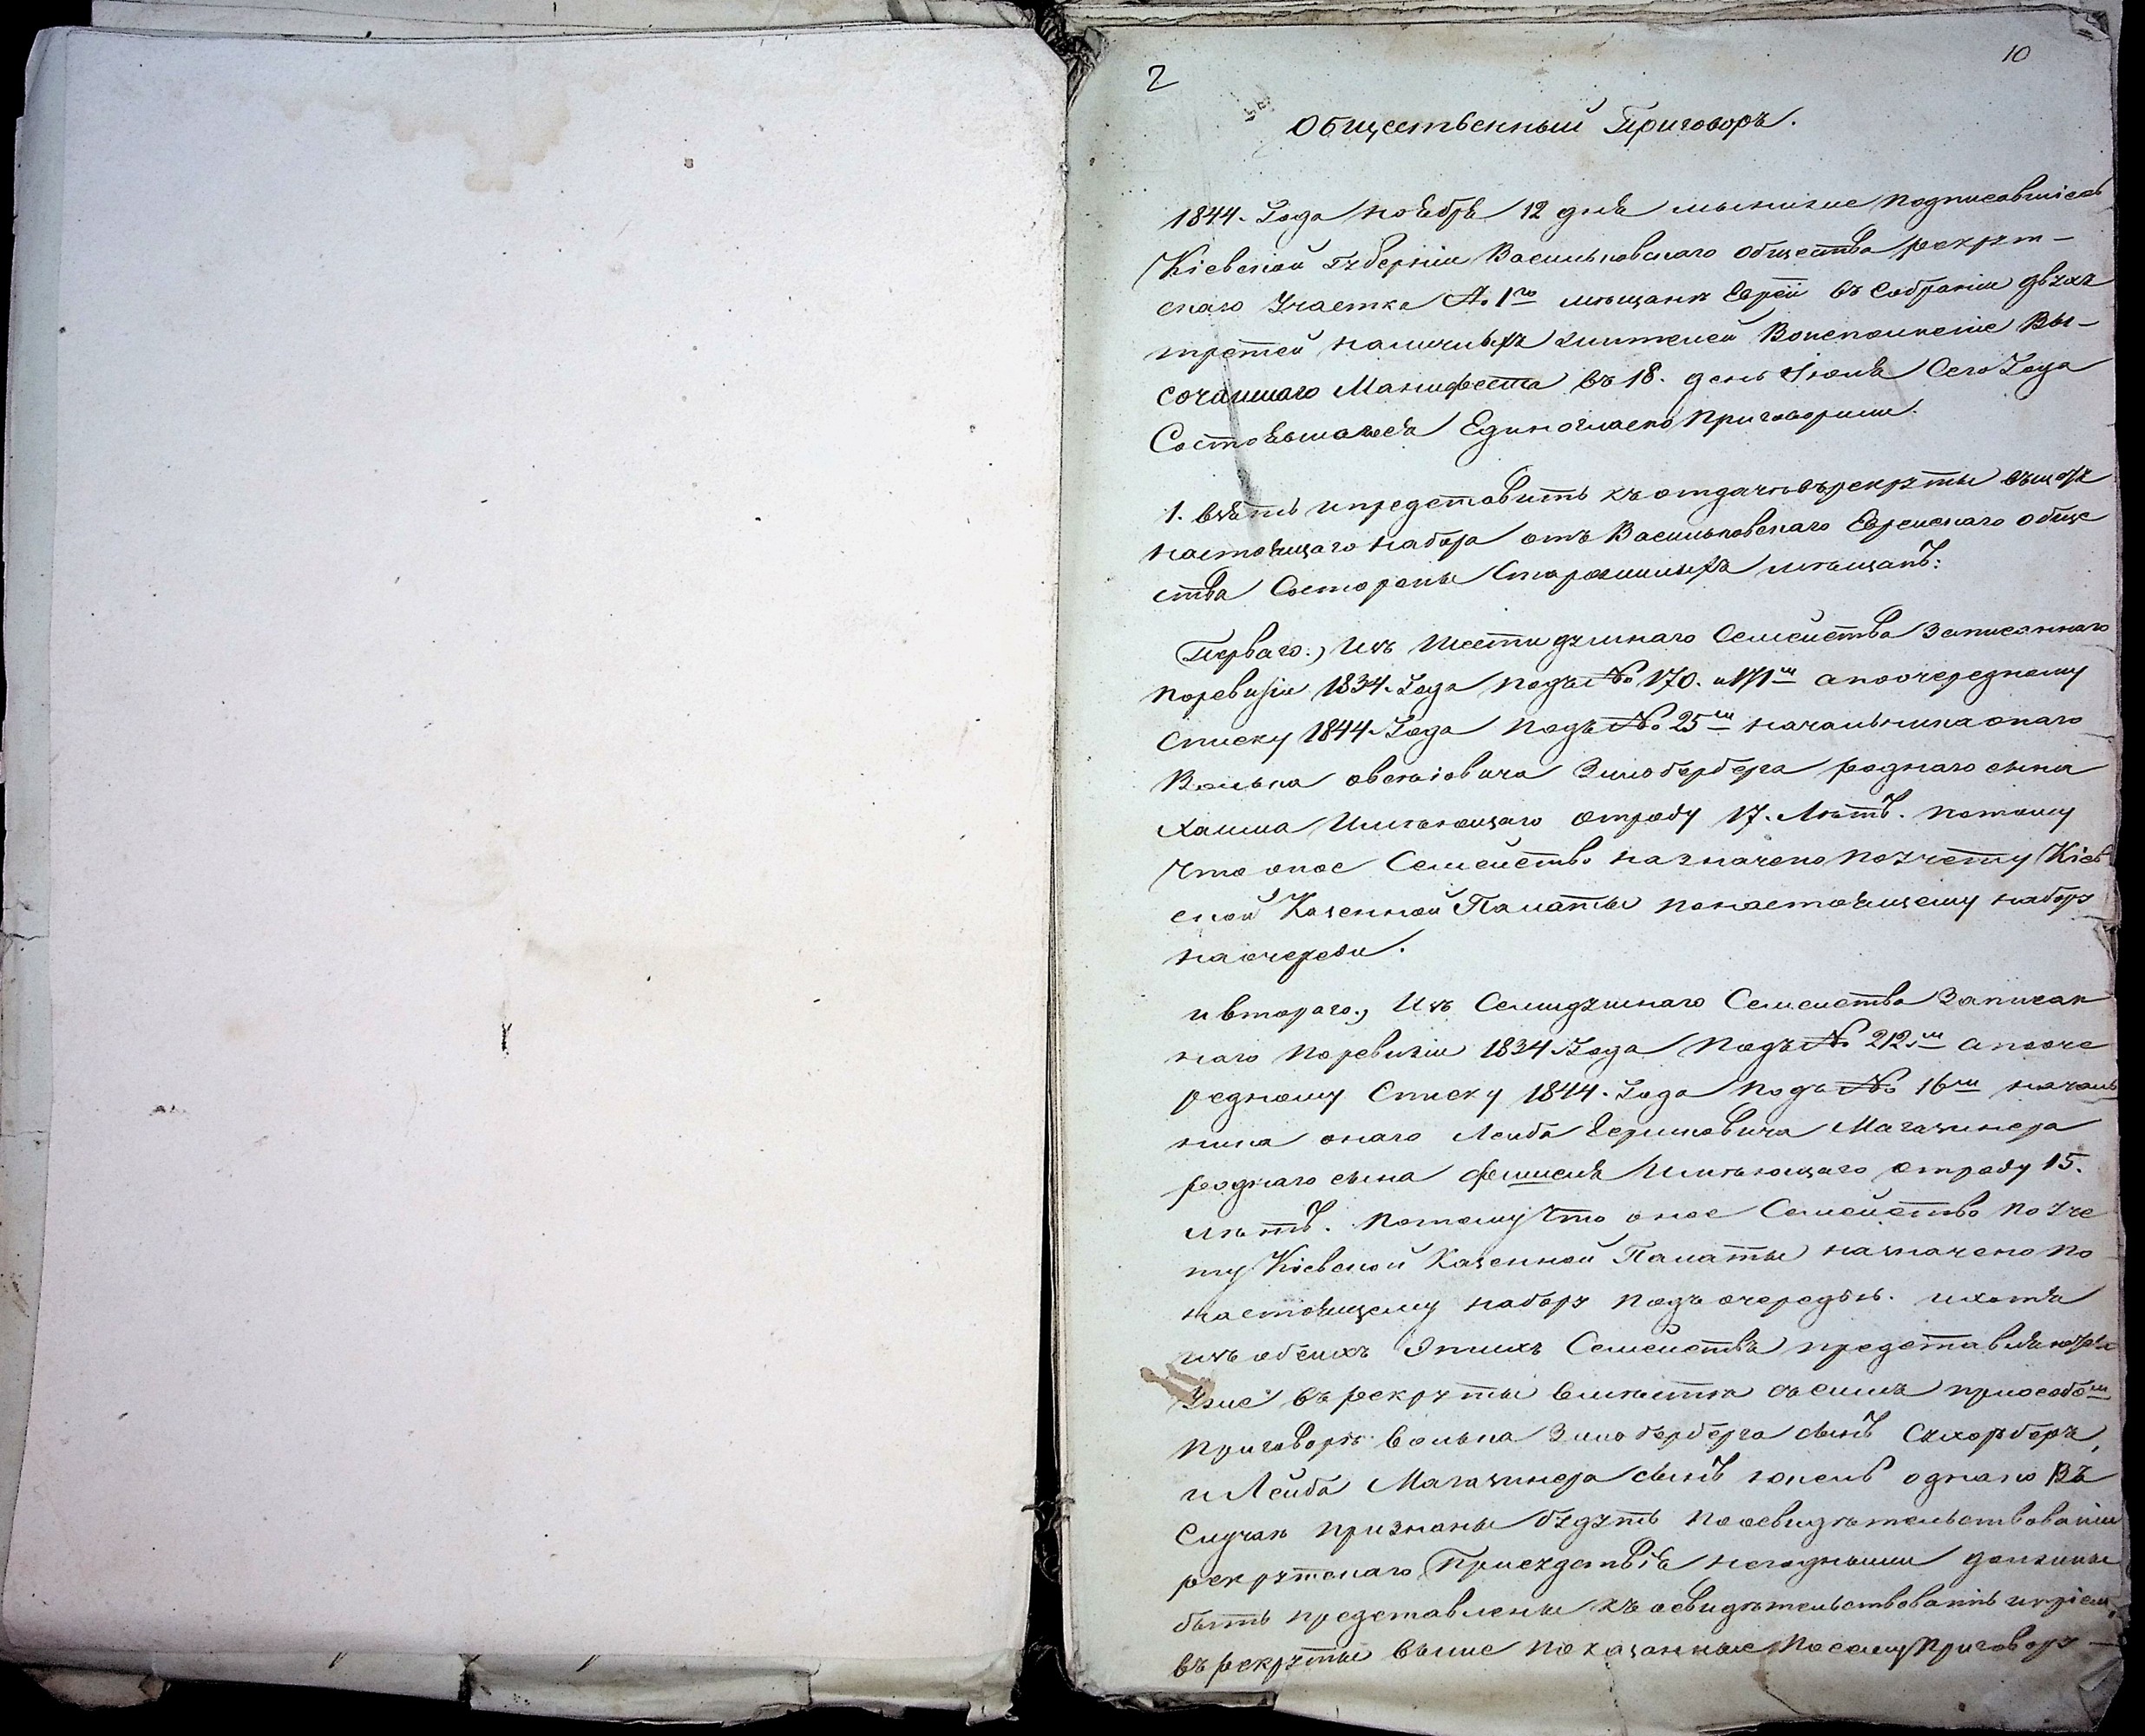 10
2
Общественный Приговоръ.
1844. Года ноября 12 дня мы ниже подписавшіеся
Кіевской губерніи Васильковскаго общества рекрут-
скаго участка № 1го мѣщане Евреи въ собраніи двухъ
третей наличныхъ жителей Воисполненіе Вы-
сочайшаго Манифеста въ 18. день Іюля Сего Года
Состоявшагося Единогласно Приговорили.
1. взять и представить къ отдачѣ въ рекруты въ
настоящаго набора отъ Васильковскаго Еврейскаго обще
ства Состороны мѣщанъ:
Перваго.) Изъ Шестидушнаго Семейства Записаннаго
поревизіи 1834. Года подъ № 170. и 171м а поочередному
Списку 1844. Года подъ № 25м начальника онаго
Волька Зильбербера роднаго сына
Хаима Имѣющаго отроду 17. Лѣтъ. потому
Что оное Семейство назначено поучету Кіев
ской Казенной Палаты понастоящему набору
на очереди.
и втораго.) Изъ Семидушнаго Семейства Записан
наго Поревизіи 1834 Года Подъ № 212.м а пооче
редному Списку 1844. Года Подъ № 16м началь
ника онаго Лейба Берковича Магазинера
роднаго сына Фишеля Имѣющаго отроду 15.
лѣтъ. Потому Что оное Семейство по уче
ту Кіевской Казенной Палаты назначено по
настоящему набору подъ очередью. и хотя
изъ обеихъ Этихъ Семействъ
уже въ рекруты вмѣстѣ съ симъ приособом
приговорѣ Волька Зильбербера сынъ
и Лейба Магазинера сынъ Іосель однако Въ
Случаѣ признаны будутъ поосвидѣтельствованіи
рекрутскаго Присудствія негодными должны
быть представлены къ освидѣтельствованію и пріему
въ рекруты выше показанные Посему Приговору —